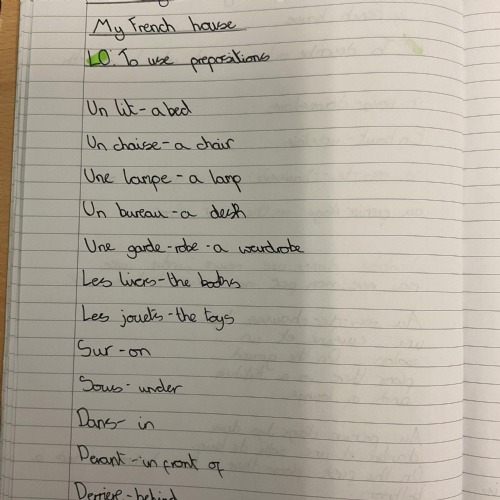 My French house
LO: To use prepositions
Un lit - a bed
Un chaise - a chair
Une lampe - a lamp
Un bureau - a desk
Une garde-robe - a wardrobe
Les livers - the books
Les jouets - the toys
Sur - on
Sous - under
Dans - in
Devant - in front of
Derriere - behind